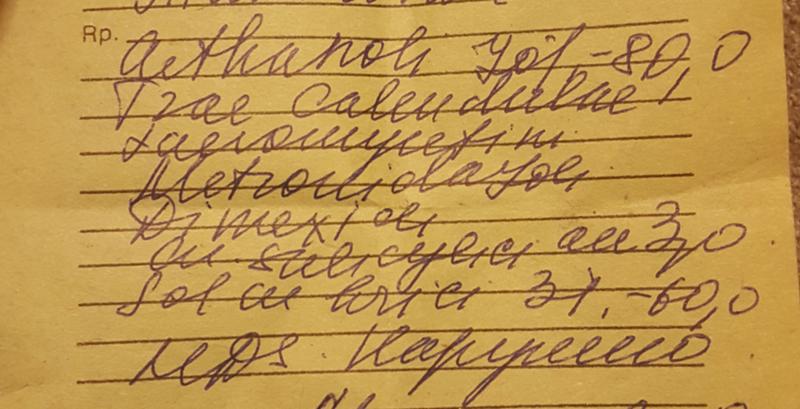 Rp. Aethanoli 70% - 80,0
Trae Calendulae
Laevomycetini
Metronidazoli
Dimexidi
Ac. salicylici aa 3,0
Sol ac borici 3% - 60,0
MDS. Наружно